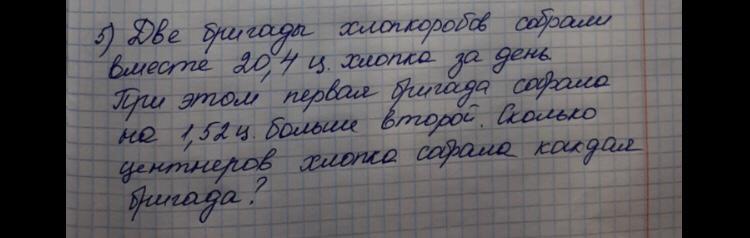 5) Две бригады хлопкоробов собрали
вместе 20,4 ц. хлопка за день.
При этом первая бригада собрала
на 1,52 ц. больше второй. Сколько
центнеров хлопка собрала каждая
бригада?